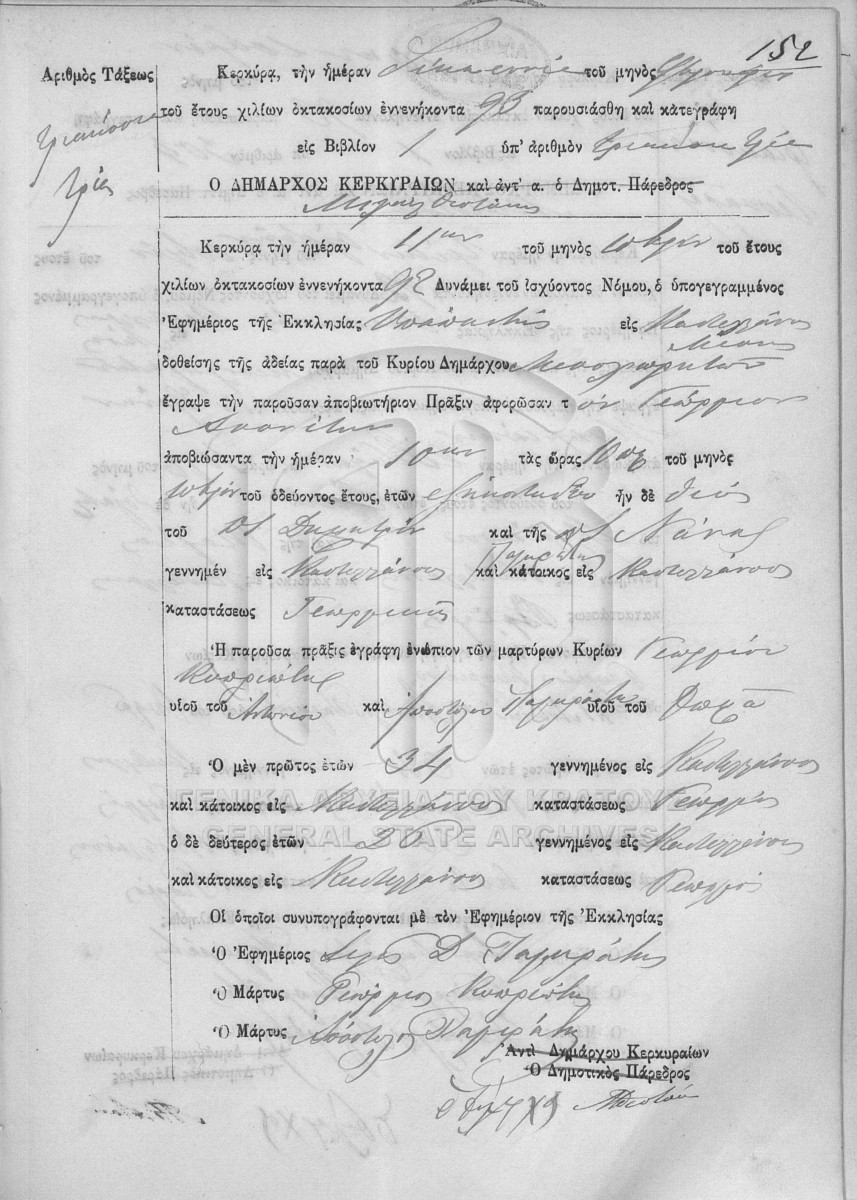 152
Ἀριθμὸς Τάξεως
τριακόσια
τρία
Κερκύρᾳ, τὴν ἡμέραν Δεκαεννέα τοῦ μηνὸς
τοῦ ἔτους χιλίων ὀκτακοσίων ἐννενήκοντα 93 παρουσιάσθη καὶ κατεγράφη
εἰς Βιβλίον 1 ὑπ' ἀριθμὸν τριακόσια τρία
Ο ΔΗΜΑΡΧΟΣ ΚΕΡΚΥΡΑΙΩΝ καὶ ἀντ' α. ὁ Δημοτ. Πάρεδρος
Μιχαὴλ Θεοτόκης
Κερκύρᾳ τὴν ἡμέραν 11ην τοῦ μηνὸς τοῦ ἔτους
χιλίων ὀκτακοσίων ἐννενήκοντα 92 Δυνάμει τοῦ ἰσχύοντος Νόμου, ὁ ὑπογεγραμμένος
Ἐφημέριος τῆς Ἐκκλησίας Ὑπαπαντῆς εἰς Καστελλάνους
Μέσης
δοθείσης τῆς ἀδείας παρὰ τοῦ Κυρίου Δημάρχου
ἔγραψε τὴν παροῦσαν ἀποβιωτήριον Πρᾶξιν ἀφορῶσαν τ όν Γεώργιον
ἀποβιώσαντα τὴν ἡμέραν 10ην τὰς ὥρας 10 τοῦ μηνὸς
τοῦ ὁδεύοντος ἔτους, ἐτῶν ἦν δὲ υἱός
τοῦ Δημητρίου καὶ τῆς Νάνας
Παγκράτη
γεννημέν εἰς Καστελλάνους καὶ κάτοικος εἰς Καστελλάνους
καταστάσεως Γεωργικῆς
Ἡ παροῦσα πρᾶξις ἐγράφη ἐνώπιον τῶν μαρτύρων Κυρίων Γεωργίου
Κυπριώτης
υἱοῦ τοῦ Ἀντωνίου καὶ Ἀπόστολος Παγκράτης υἱοῦ τοῦ Θωμᾶ
Ὁ μὲν πρῶτος ἐτῶν 34 γεννημένος εἰς Καστελλάνους
καὶ κάτοικος εἰς Καστελλάνους καταστάσεως Γεωργός
ΓΕΝΙΚΑ ΑΡΧΕΙΑ ΤΟΥ ΚΡΑΤΟΥΣ
GENERAL STATE ARCHIVES
ὁ δὲ δεύτερος ἐτῶν γεννημένος εἰς Καστελλάνους
καὶ κάτοικος εἰς Καστελλάνους καταστάσεως Γεωργός
Οἱ ὁποῖοι συνυπογράφονται μὲ τὸν Ἐφημέριον τῆς Ἐκκλησίας
Ὁ Ἐφημέριος Δ Παγκράτης
Ὁ Μάρτυς Γεώργιος Κυπριώτης
Ὁ Μάρτυς Ἀπόστολος Παγκράτης
Ἀντὶ Δημάρχου Κερκυραίων
Ὁ Δημοτικὸς Πάρεδρος